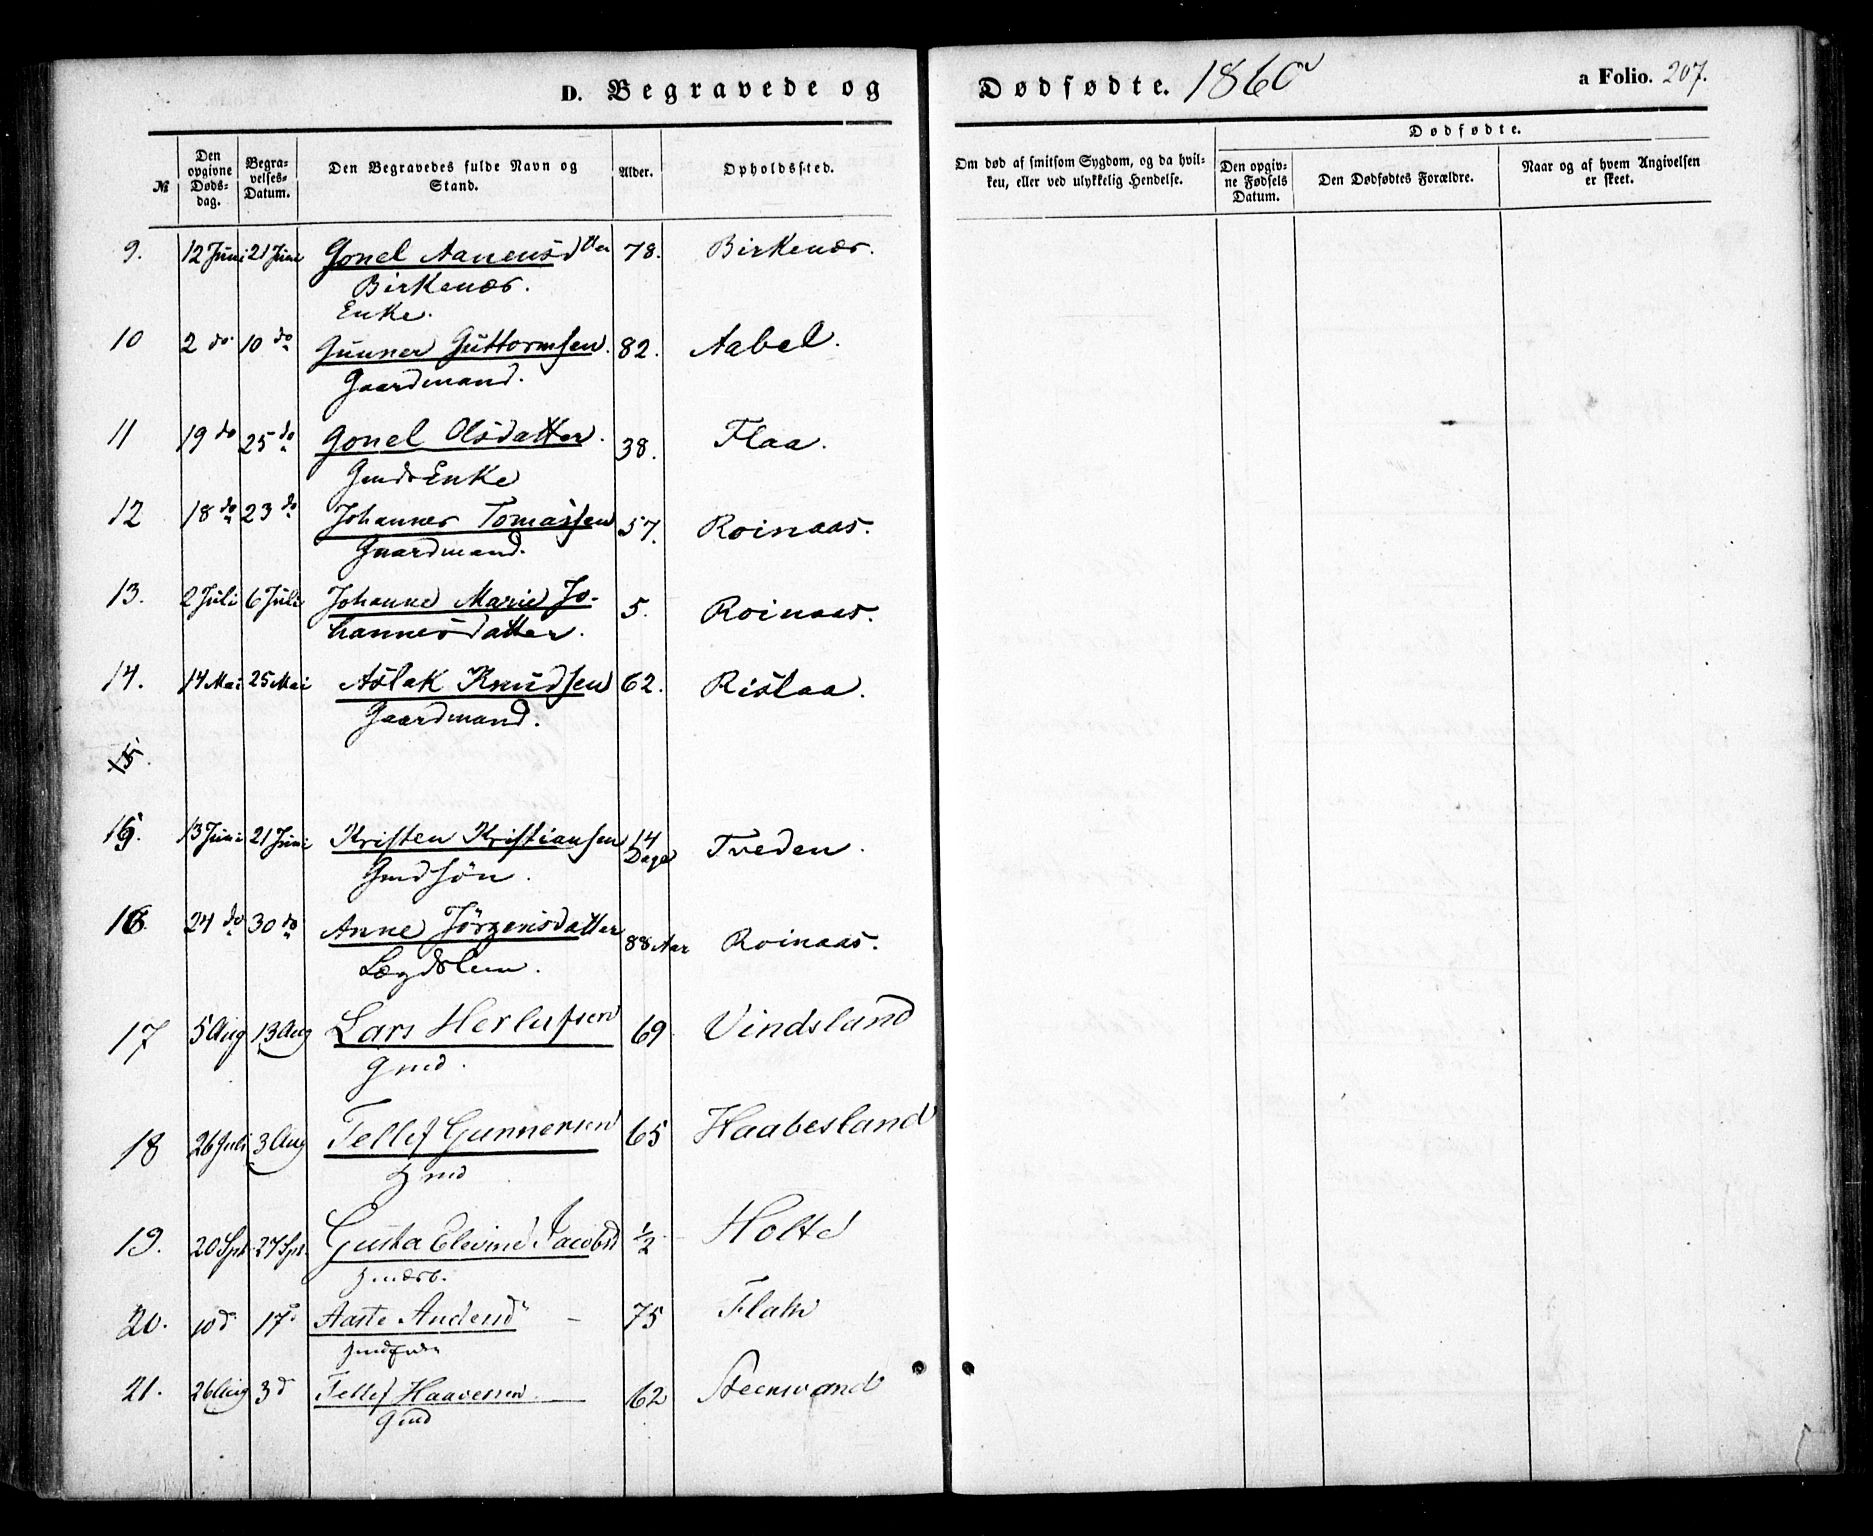 D. Begravede og Dødfødte. 1860 a Folio. 207.
№ Den opgivne Døds-dag. Begra-velses-Datum. Den Begravedes fulde Navn og Stand. Alder. Opholdssted. Om død af smitsom Sygdom, og da hvil-ken, eller ved ulykkelig Hendelse. Dødfødte. Den opgiv-ne Fødsels Datum. Den Dødfødtes Forældre. Naar og af hvem Angivelsen er skeet.
9. 12 Juni 21 Juni Gonel Aanensdtter 78. Birkenæs.
Birkenæs.
Enke.
10 2 do 10 do Gunner Guttormsen. 82. Aabel.
Gaardmand.
11 19 do 25 do Gonel Olsdatter. 38. Flaa.
Gmds Enke
12 18 do 23 do Johannes Tomassen 57. Roinaas.
Gaardmand.
13. 2 Juli 6 Juli Johanne Marie Jo- 5. Roinaas.
hannesdatter.
14. 14 Mai 25 Mai Aslak Knudsen 62. Rislaa.
Gaardmand.
15.
15. 13 Juni 21 Juni Kristen Kristiansen 14 Dage Tveden.
Gmdsøn.
16. 24 do 30 do Anne Jörgensdatter 88 Aar Roinaas.
Lægdslem.
17 5 Aug 13 Aug Lars Herlufsen 69 Vindsland
Gmd.
18 26 Juli 3 Aug Tellef Gunnersen 65 Haabesland
Gmd
19. 20 Spt 27 Spt. Gusta Elevine Jacobsd ½ Holte
20. 10 d 17 d Aaste Andersd 75
21. 26 Aug 3 d Tellef Haavessen 62 Steenvand
Gmd